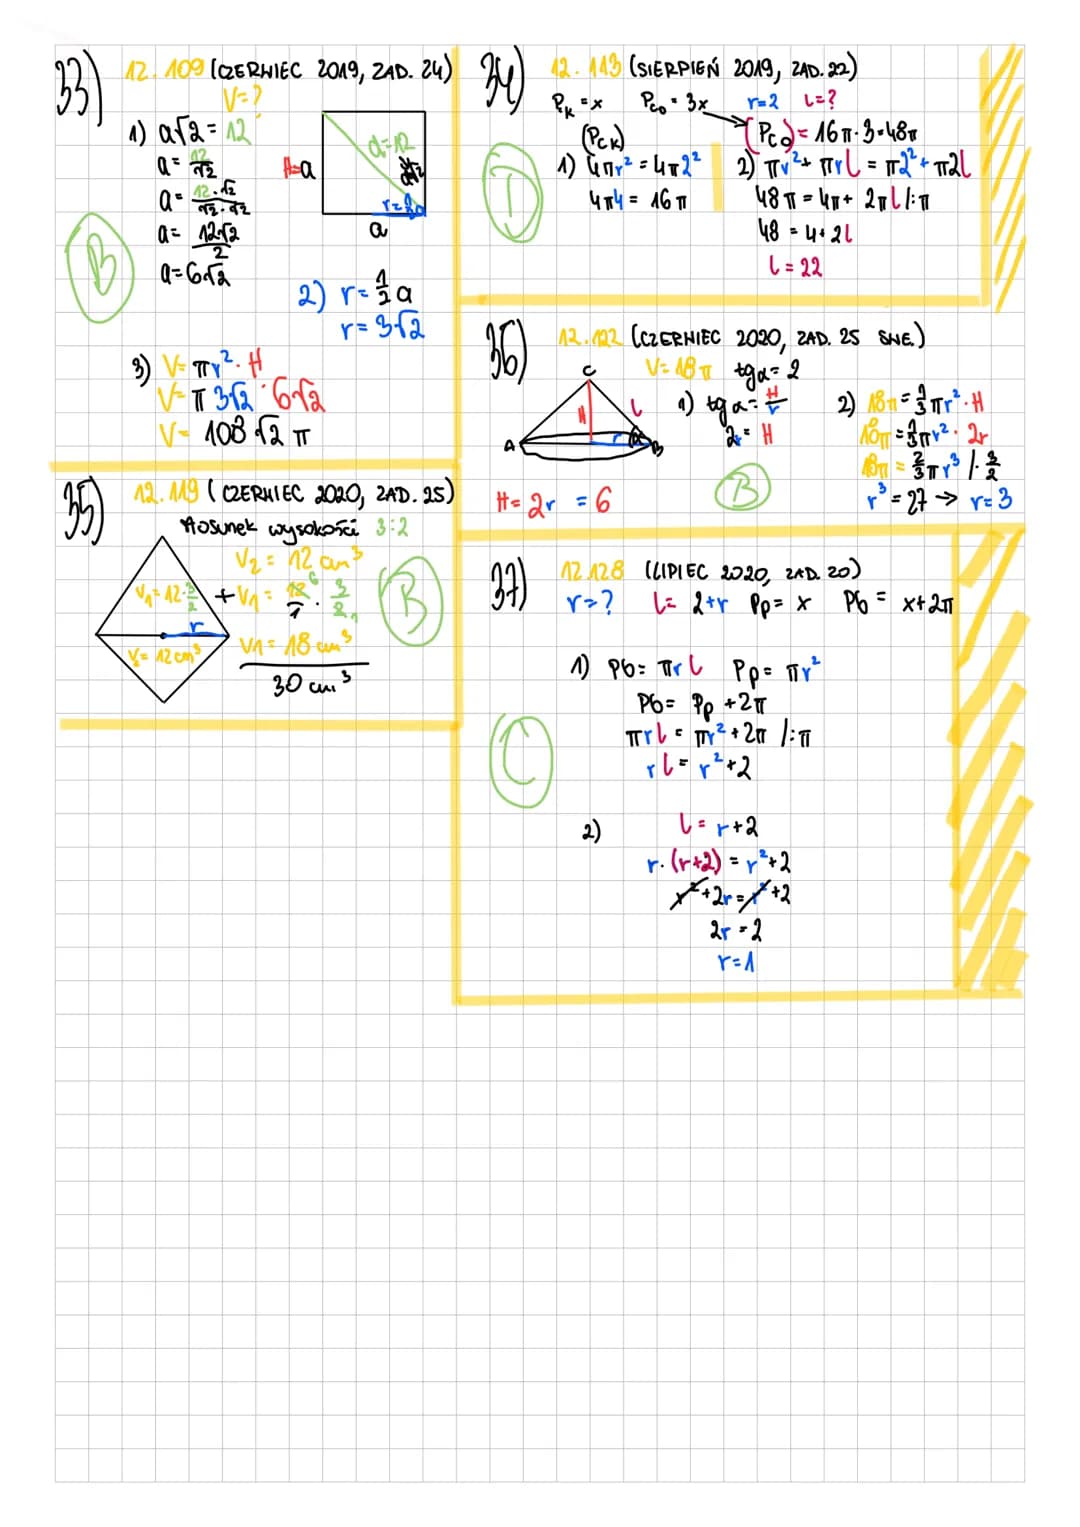 33) 12.109 (CZERWIEC 2019, ZAD. 24)
V=?
1) a√2 = 12
a = 12/√2
a = 12·√2/√2·√2
a = 12√2/2
a = 6√2
B
H=a
d=12
a
2) r = 1/2 a
r = 3√2
3) V = πr² · H
V = π 3√2 · 6√2
V = 108√2 π
34) 12.113 (SIERPIEŃ 2019, ZAD. 22)
Pk = x Pco = 3x r=2 l=?
(Pck) (Pco) = 16π·3=48π
1) 4πr² = 4π2²
4π4 = 16π
D
2) πr² + πrl = π2² + π2l
48π = 4π + 2πl /:π
48 = 4+2l
l = 22
35) 12.119 (CZERWIEC 2020, ZAD. 25)
stosunek wysokości 3:2
V₂ = 12 cm³
+ V₁ = 12/1 · 3/2
6
1
V1 = 18 cm³
30 cm³
B
V₁ = 12·3/2
r
V₂ = 12 cm³
36) 12.122 (CZERWIEC 2020, ZAD. 25 SNE.)
V = 18π tgα = 2
C
H
l
A
r
α
B
1) tgα = H/r
2r = H
2) 18π = 1/3 πr² · H
18π = 1/3 πr² · 2r
18π = 2/3 πr³ / · 3/2
r³ = 27 → r = 3
H = 2r = 6
B
37) 12.128 (LIPIEC 2020, ZAD. 20)
r=? l = 2+r Pp = x Pb = x+2π
1) Pb = πrl Pp = πr²
Pb = Pp + 2π
πrl = πr² + 2π /:π
rl = r²+2
C
2) l = r+2
r·(r+2) = r²+2
r²+2r = r²+2
2r = 2
r = 1